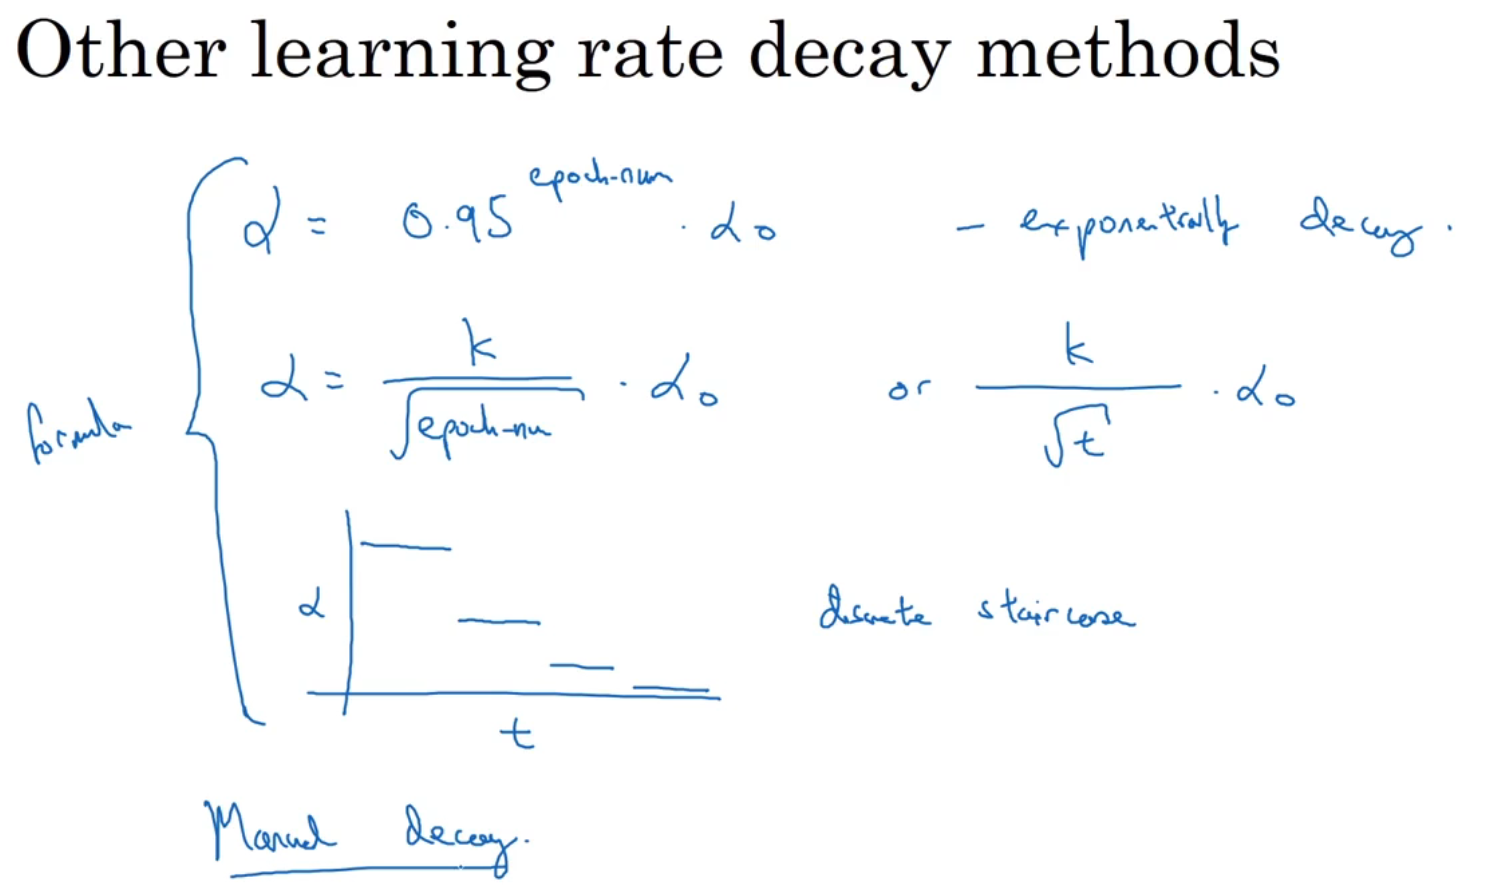 Other learning rate decay methods
α = 0.95^epoch-num · α₀ - exponentially decay.
α = k/√epoch-num · α₀ or k/√t · α₀
formula
α discrete staircase
t
Manual decay.